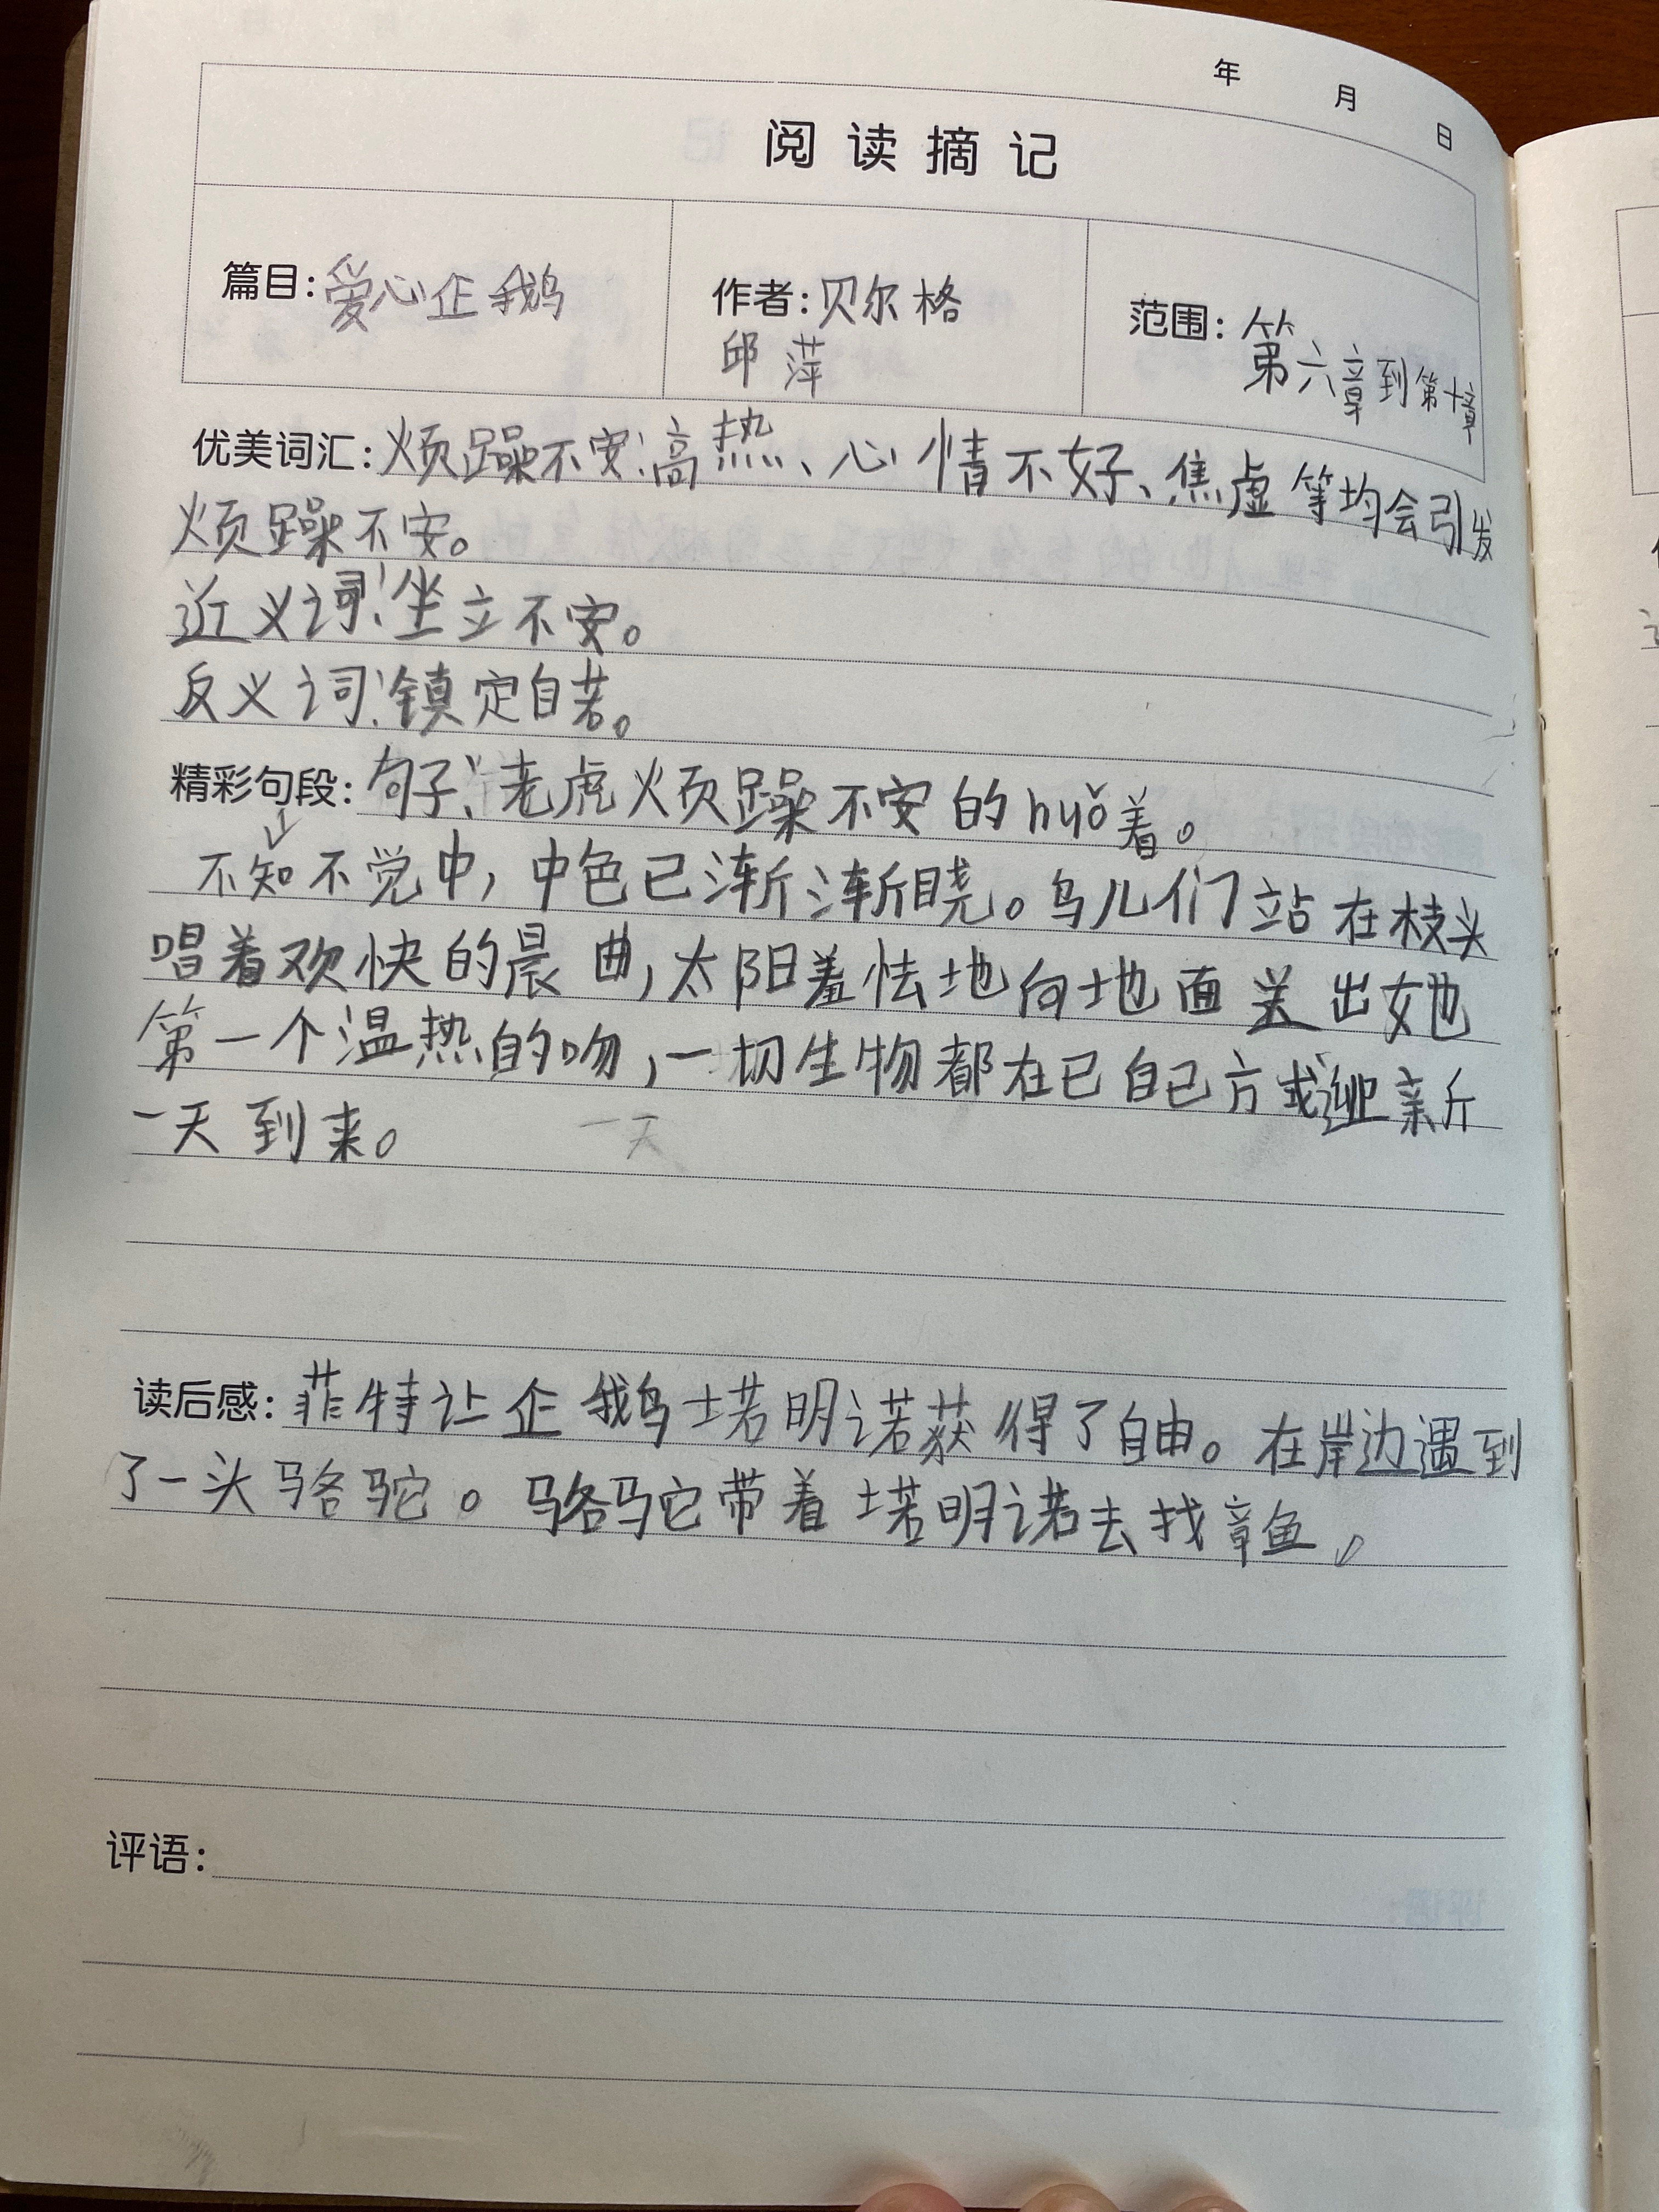 年 月 日
阅读摘记
篇目：爱心企鹅 作者：贝尔格 范围：第六章到第十章
邱萍
优美词汇：烦躁不安：高热、心情不好、焦虑等均会引发
烦躁不安。
近义词：坐立不安。
反义词：镇定自若。
精彩句段：句子：老虎烦躁不安的huǒ着。
不知不觉中，中色已渐渐晓。鸟儿们站在枝头
唱着欢快的晨曲，太阳羞怯地向地面送出她
第一个温热的吻，一切生物都在已自己方式迎亲斤
一天到来。 一天
读后感：菲特让企鹅塔明诺获得了自由。在岸边遇到
了一头骆驼。骆驼带着塔明诺去找章鱼。
评语：